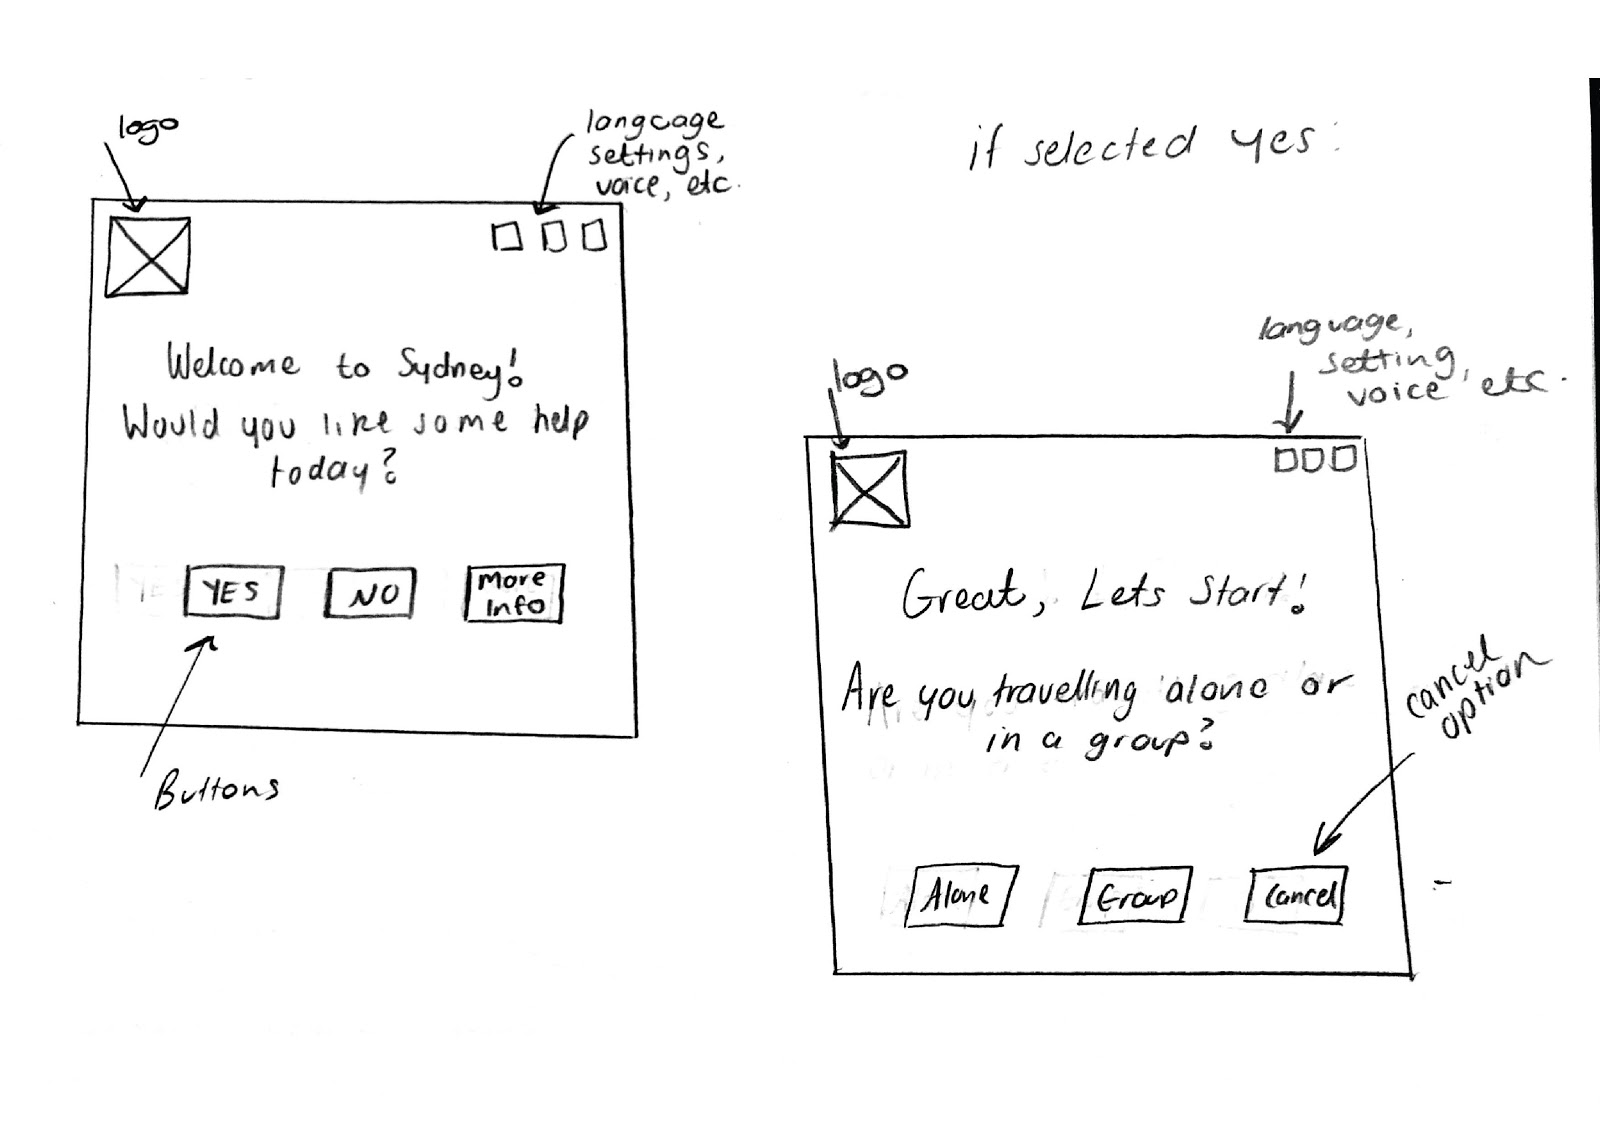 logo
langcage
settings,
voice, etc.
Welcome to Sydney!
Would you like some help
today?
YES
NO
More
Info
Buttons
if selected yes:
logo
language,
setting,
voice, etc.
Great, Lets Start!
Are you travelling alone or
in a group?
cancel
option
Alone
Group
Cancel